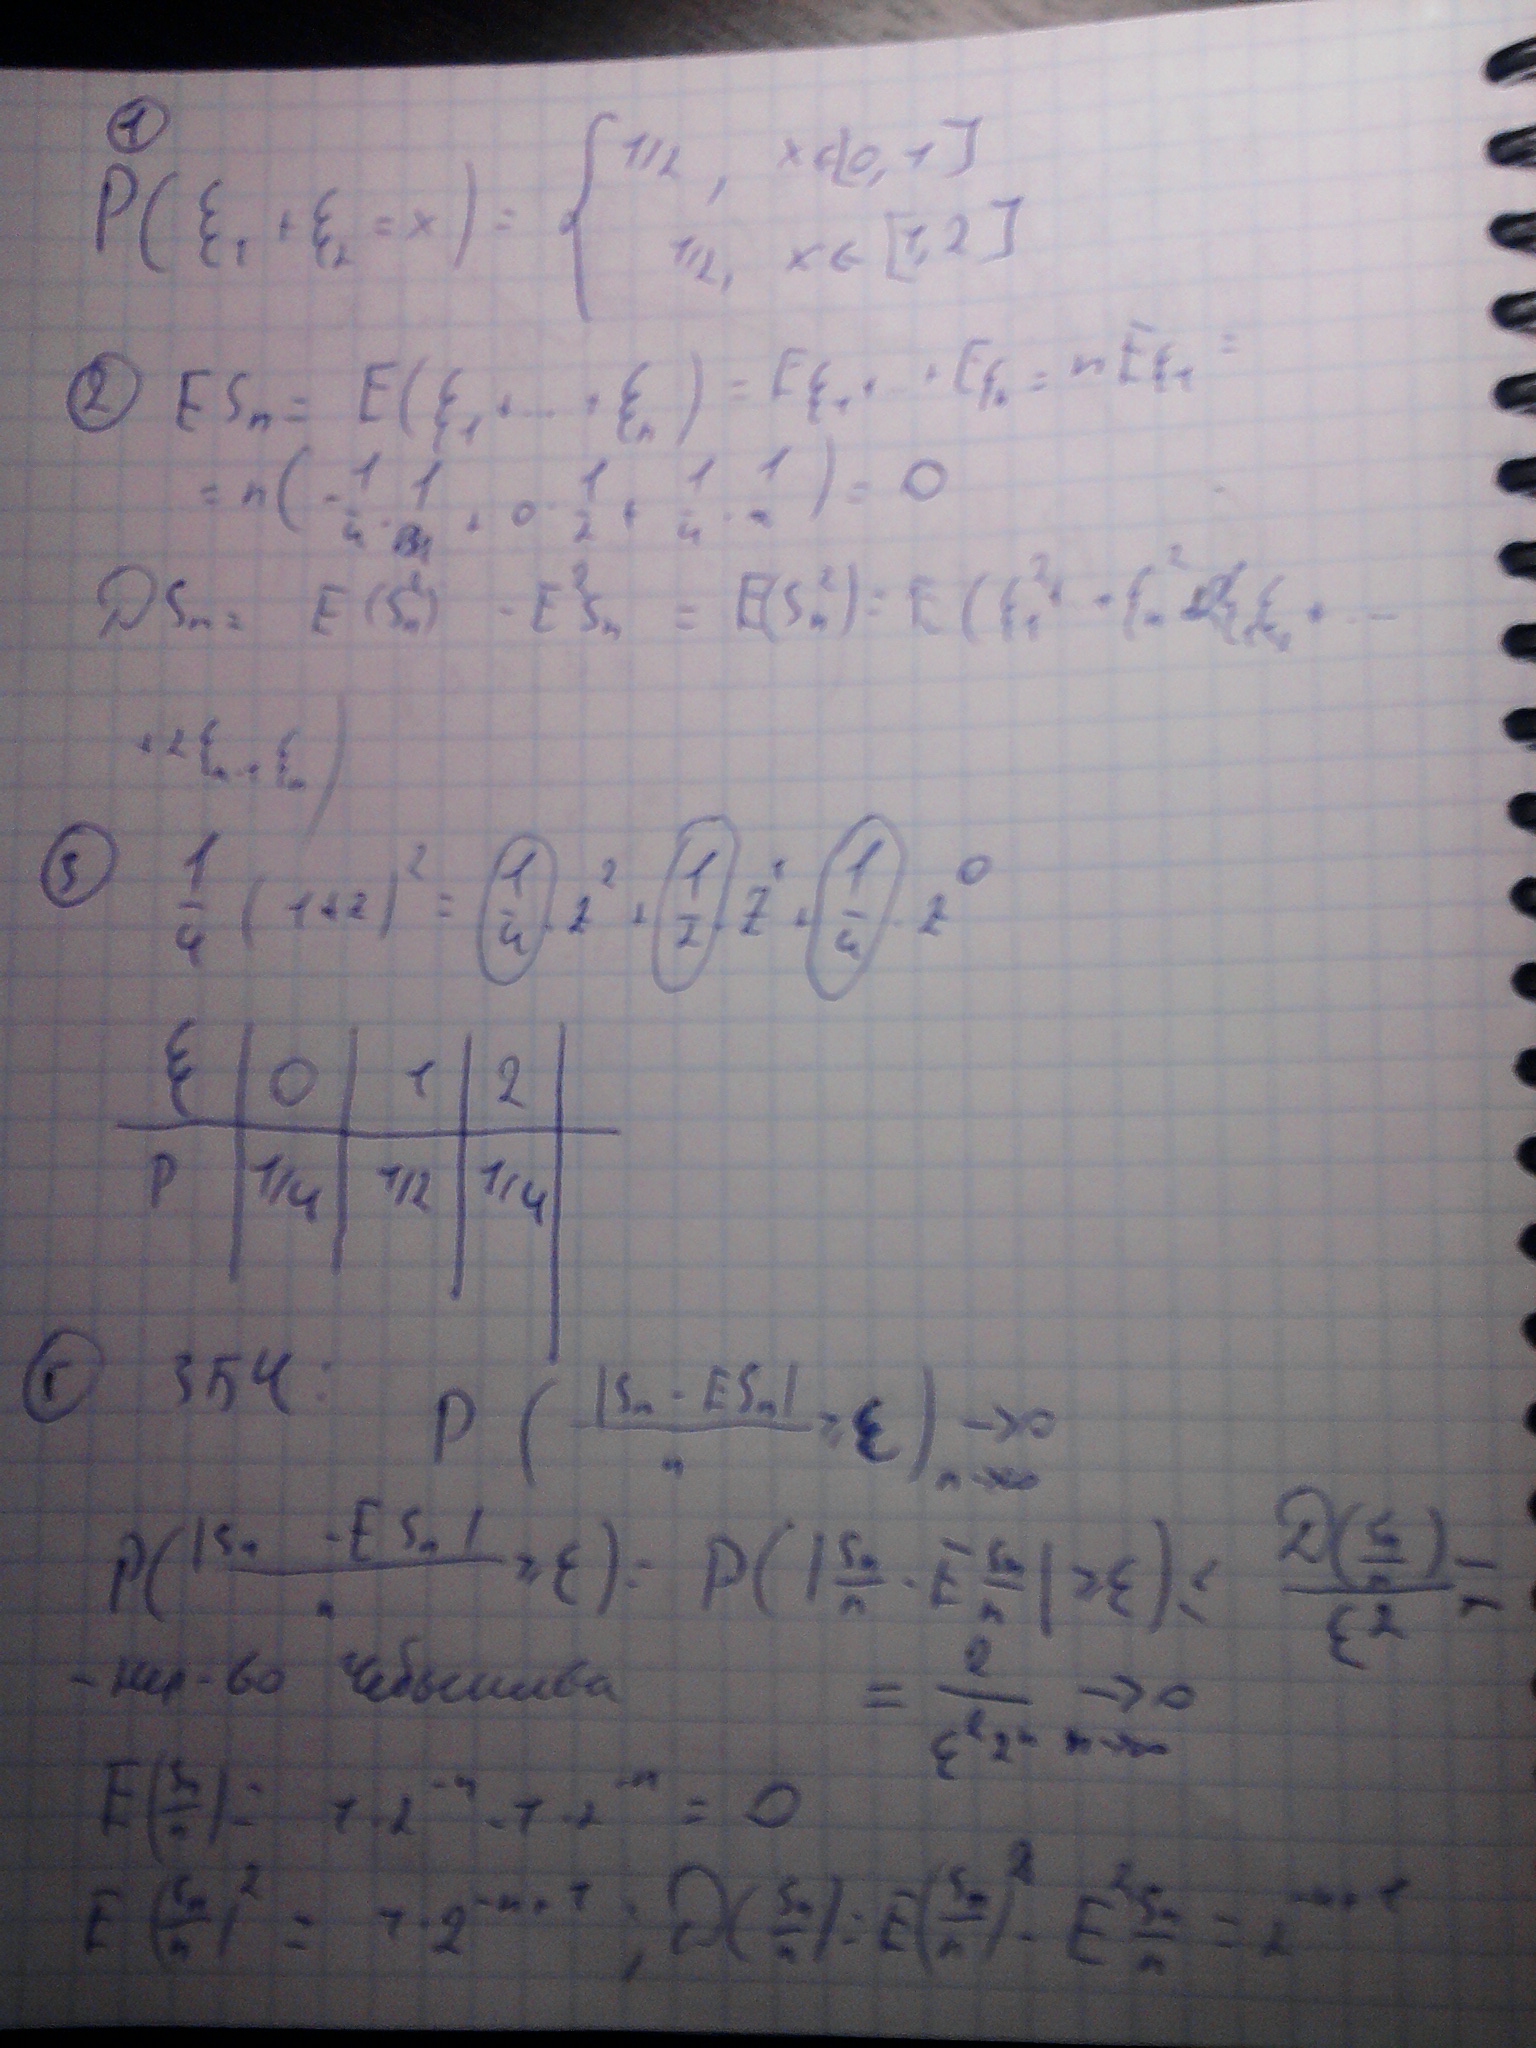 ①
P(ξ₁ + ξ₂ = x) = { 1/2, x∈[0,1]
1/2, x∈[1,2]
② ESₙ = E(ξ₁ + ... + ξₙ) = Eξ₁ + .. + Eξₙ = nEξ₁ =
= n(-1/4 · 1 + 0 · 1/2 + 1/4 · 1) = 0
DSₙ = E(Sₙ²) - E²Sₙ = E(Sₙ²) = E(ξ₁² + + ξₙ² ξ₁ξ₂ + ...
+ 2ξₙ₋₁ξₙ)
③ 1/4 (1+z)² = 1/4 · z² + 1/2 · z¹ + 1/4 · z⁰
ξ | 0 | 1 | 2 |
P | 1/4 | 1/2 | 1/4 |
⑤ ЗБЧ: P(|Sₙ - ESₙ|/n ≥ ε) →0 n→∞
P(|Sₙ - ESₙ|/n ≥ ε) = P(|Sₙ/n - E Sₙ/n| ≥ ε) ≤ D(Sₙ/n)/ε² =
- нер-во Чебышева = 2/(ε²2ⁿ) →0 n→∞
E(Sₙ/n) = 1·2⁻ⁿ - 1·2⁻ⁿ = 0
E(Sₙ/n)² = 1·2⁻ⁿ⁺¹; D(Sₙ/n) = E(Sₙ/n)² - E²Sₙ/n = 2⁻ⁿ⁺¹